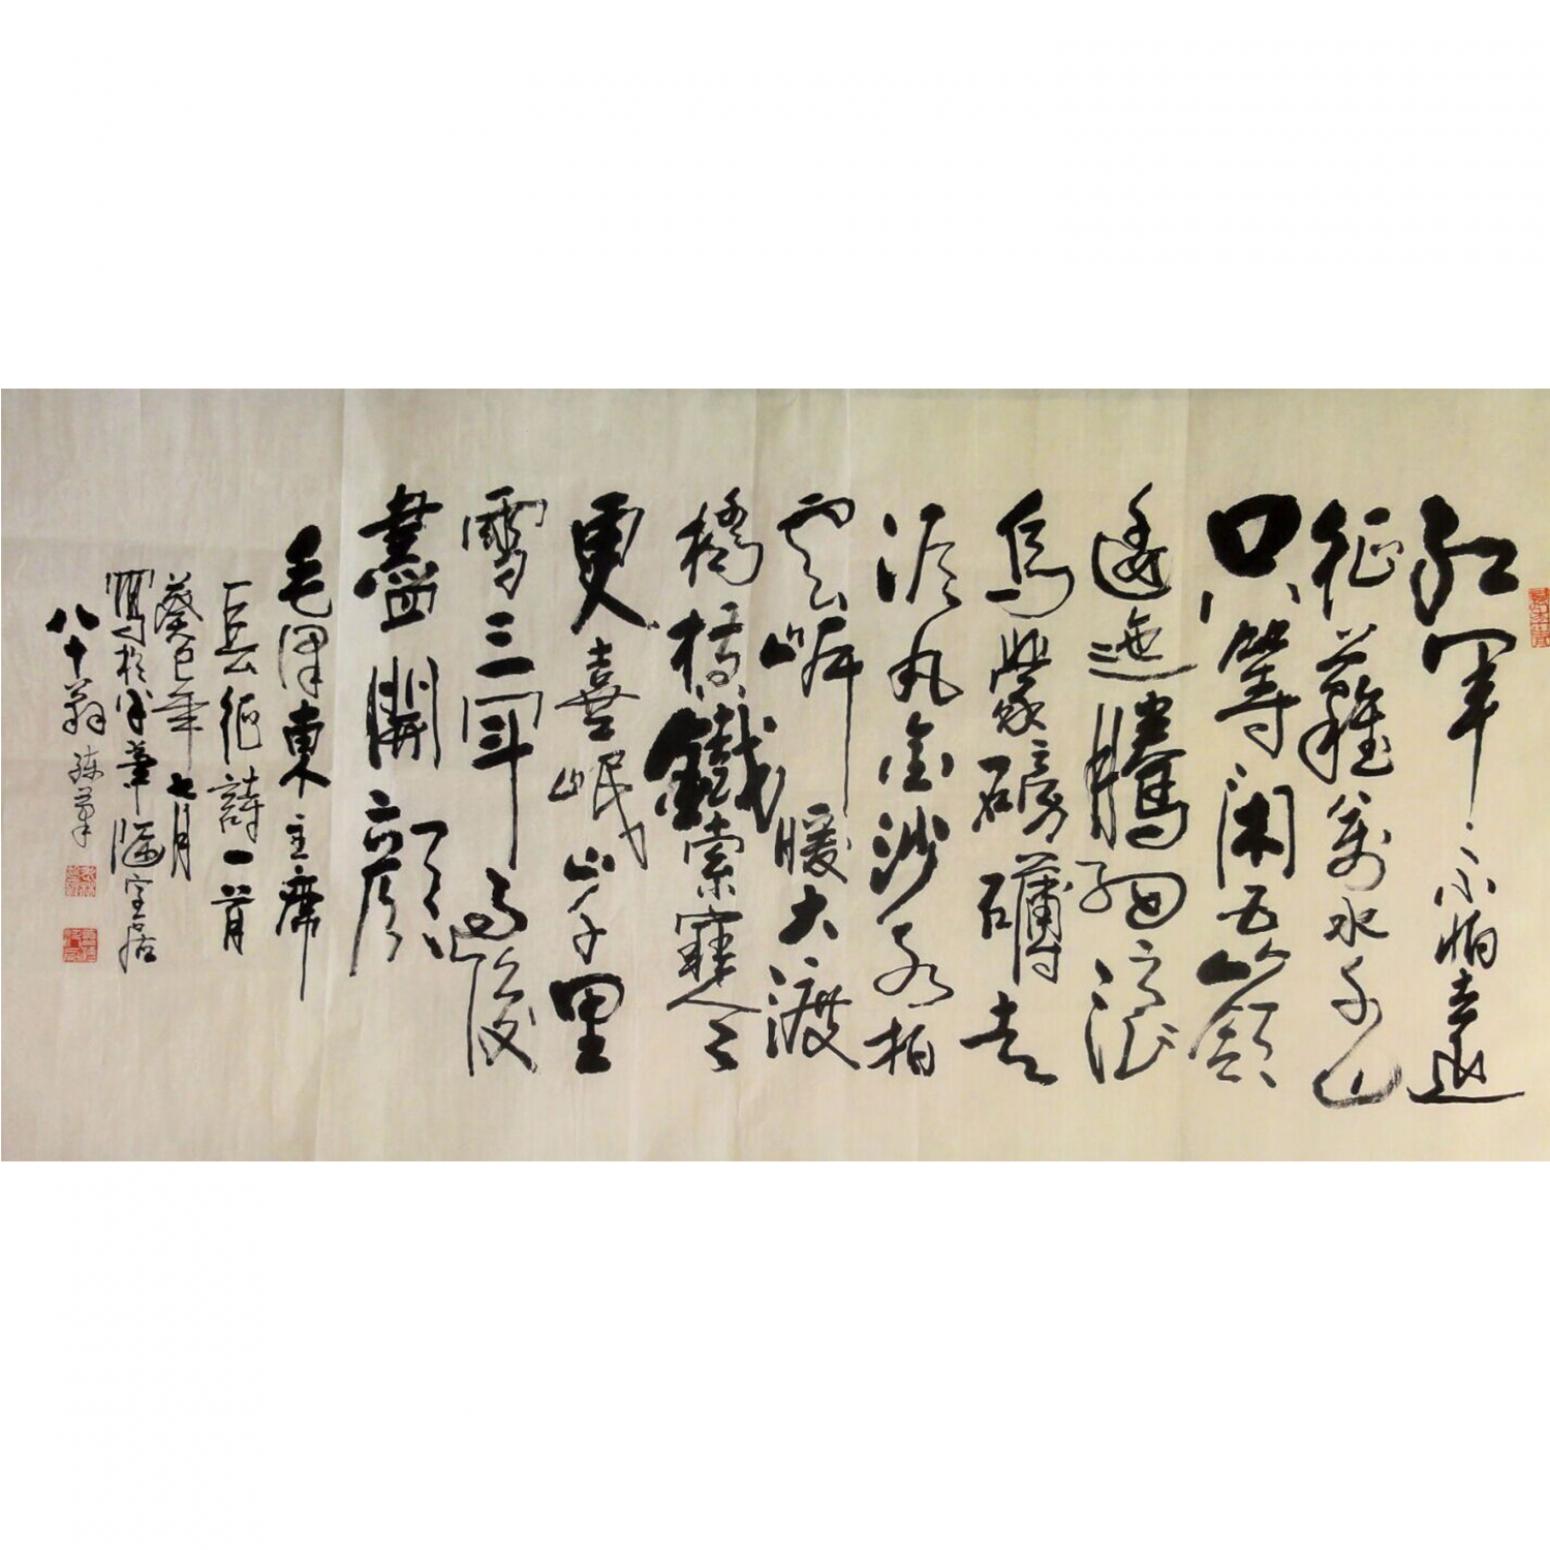 红軍不怕遠
征難萬水千山
只等閑五嶺
逶迤騰細浪
烏蒙磅礴走
泥丸金沙水拍
雲崖暖大渡
橋橫鐵索寒
更喜岷山千里
雪三軍過後
盡開顏
毛澤東主席
長征詩一首
癸巳年七月
寫於筆陋室居
八十翁